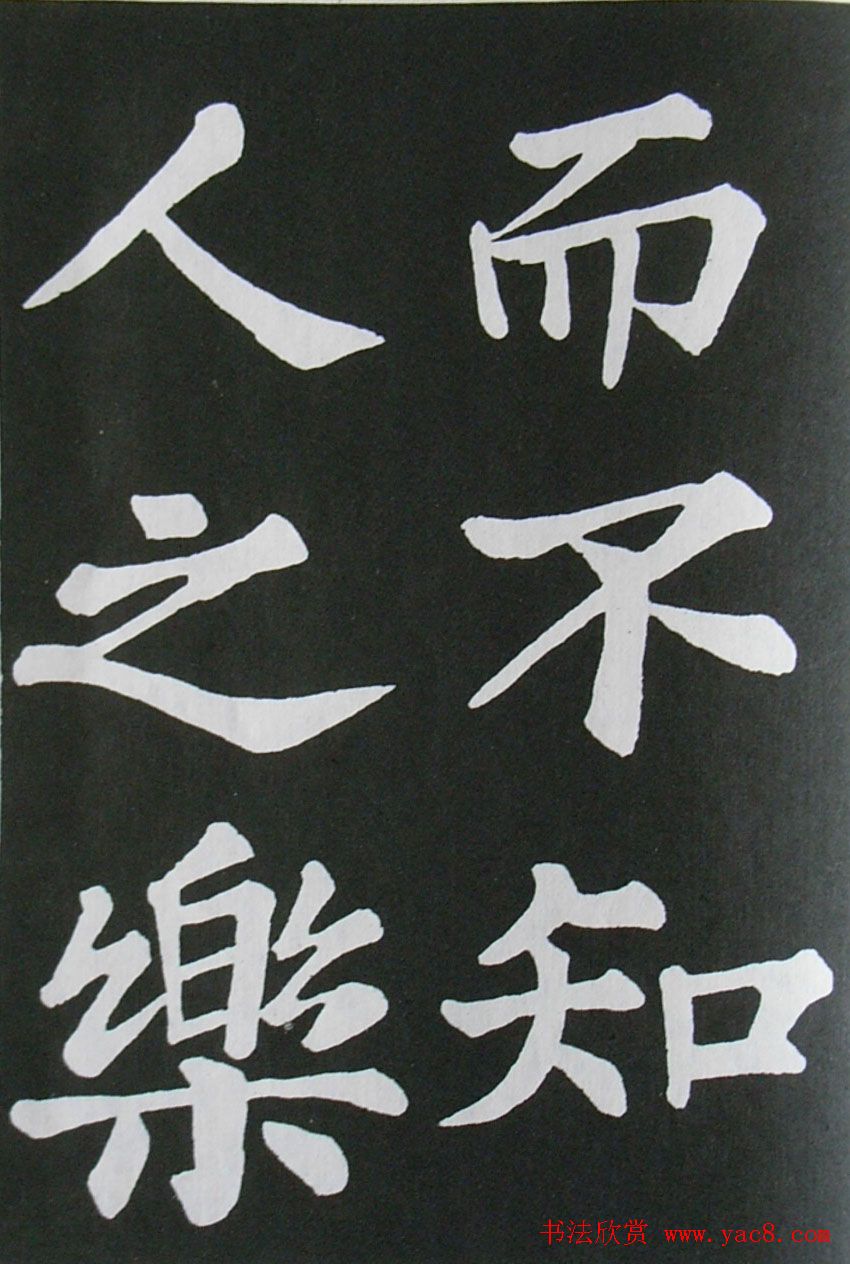 而不知
人之樂
书法欣赏 www.yac8.com